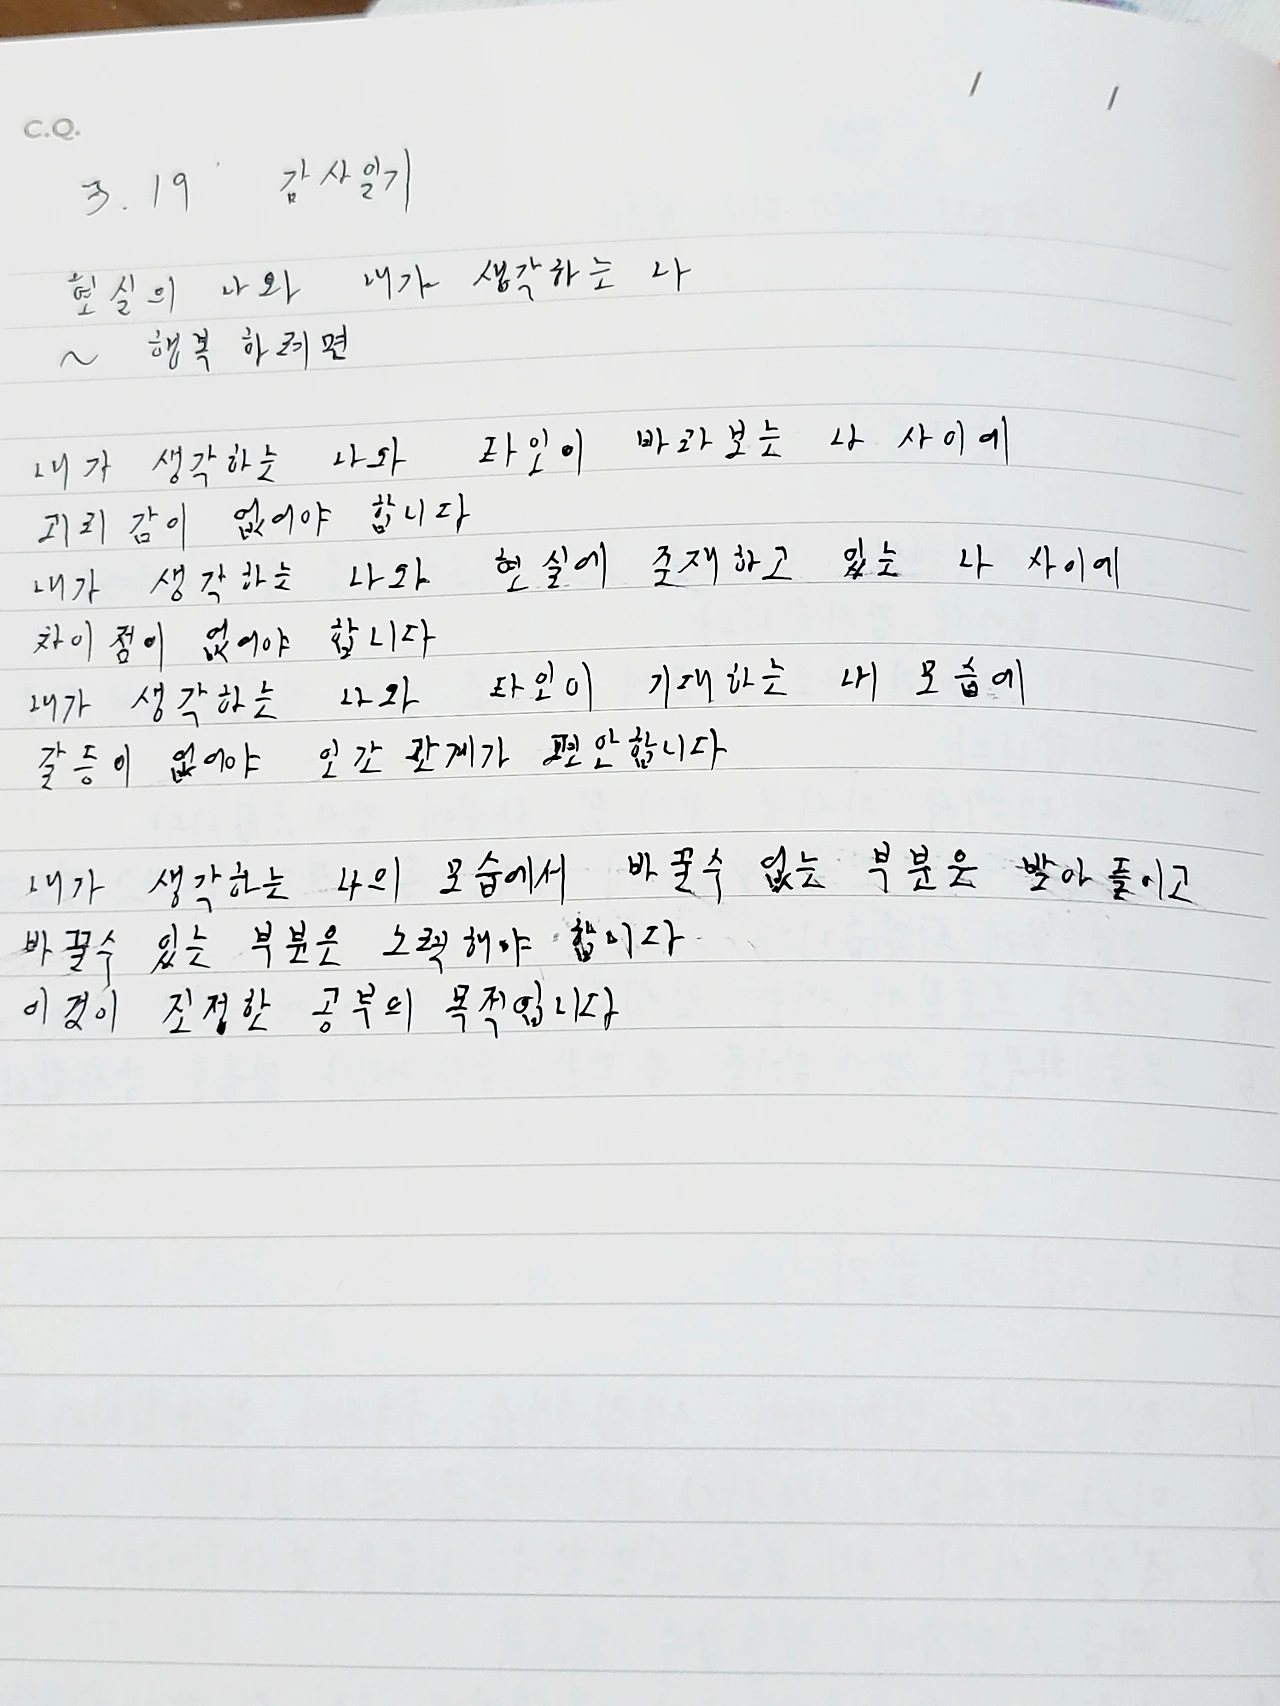 C.Q.
/ /
3. 19 감사일기
현실의 나와 내가 생각하는 나
~ 행복 하려면
내가 생각하는 나와 타인이 바라보는 나 사이에
괴리감이 없어야 합니다
내가 생각하는 나와 현실에 존재하고 있는 나 사이에
차이점이 없어야 합니다
내가 생각하는 나와 타인이 기대하는 내 모습에
갈등이 없어야 인간관계가 편안합니다
내가 생각하는 나의 모습에서 바꿀수 없는 부분은 받아들이고
바꿀수 있는 부분은 노력해야 합니다
이것이 진정한 공부의 목적입니다